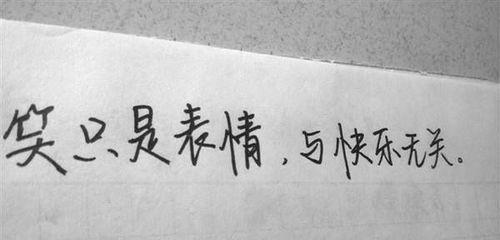 笑只是表情,与快乐无关。